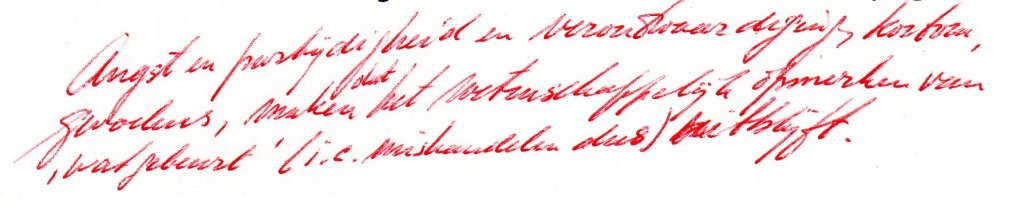 Angst en partijdigheid en verontwaardiging, kortom,
gevoelens, maken dat het wetenschappelijk opmerken van
'wat gebeurt' (i.c. mishandelen dus) uitblijft.